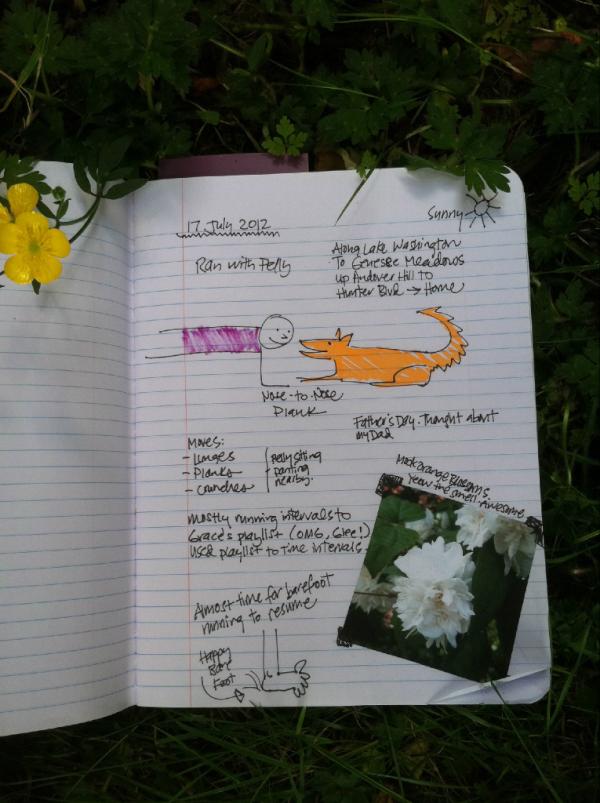 17 July 2012
Sunny
Ran with Pelly
Along Lake Washington
To Genesee Meadows
up Andover Hill to
Hunter Blvd → Home
Nose-to-Nose
Plank
Father's Day. Thought about
my Dad
Moves:
- Lunges
- Planks
- Crunches
Pelly sitting
- panting
nearby.
Mock Orange Blossoms.
Yeow the smell. Awesome
mostly running intervals to
Grace's playlist (OMG, Glee!)
Used playlist to time intervals.
Almost time for barefoot
running to resume
Happy
Bare
Foot